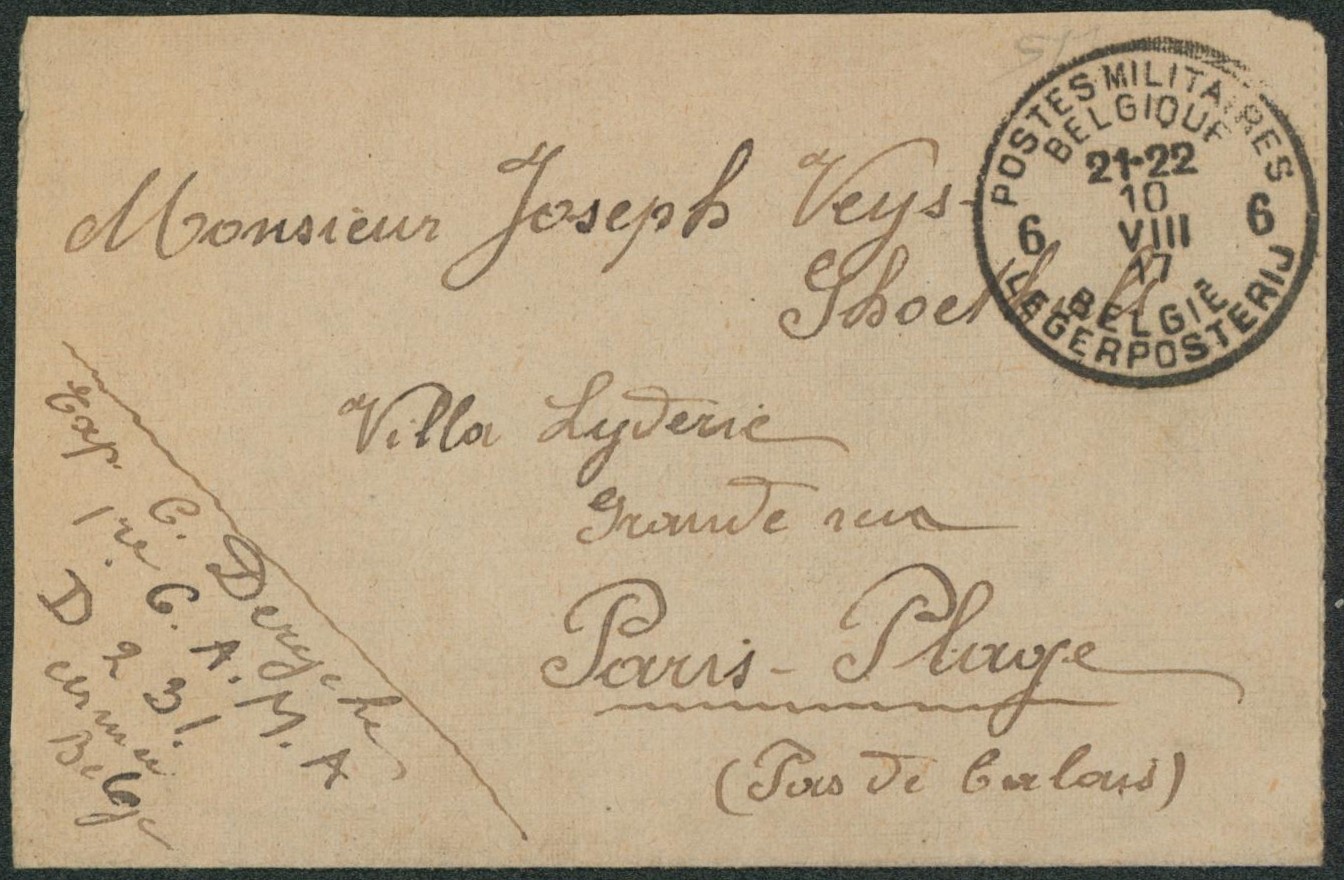 Monsieur Joseph Veys-
Villa Lyderic
Grande rue
Paris-Plage
(Pas de Calais)
C. Deruyck
1re C. A. M. A
D 231.
armée
Belge
POSTES MILITAIRES
BELGIQUE
21-22
10
VIII
17
6 6
BELGIË
LEGERPOSTERIJ